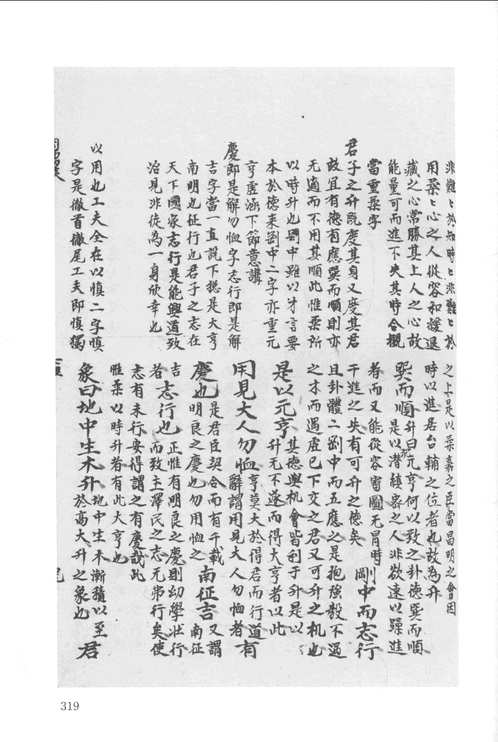 非難於知時之非難於
用柔之心之人從容和緩退
藏之心常勝其上人之心故
能量可而進不失其時合觀
當重柔字
君子之升既度其身又度其君
故宜有德有應巽而順則亦
无適而不用其順此惟柔所
以時升也剛中雖以才言要
本於德来剛中二字亦重元
亨處涵下節意講
慶即是解勿恤字志行即是解
吉字當一直說下摠是大亨
南明也征行也君子之志在
天下國家志行是能興道致
治見非徒為一身欣幸也
以用也工夫全在以慎二字慎
字是徹首徹尾工夫即慎獨
之上是以柔嘉之臣當昌明之會因
時以進居台輔之位者也故為升
巽而順 升曰元亨何以致之卦德巽而順
是以潛之人非欲速以躁進
者而又能從容審圖无冒時
干進之失有可升之德矣 剛中而志行
且卦體二剛中而五應之是抱強毅不遏
之才而遇虛已下交之君又可升之机也
是以元亨 其德與机會皆利于升是以
升无不遂而得大亨者以此
用見大人勿恤 亨莫大於得君而行道
辭謂用見大人勿恤者 有
慶也 是君臣契合而有千載
明良之慶也勿用恤之 南征吉 又謂南征
吉者 志行也 正惟有明良之慶則幼學壯行
而致主澤民之志无弗行矣使
志有未行安得謂之有慶哉此
惟柔以時升者有此大亨也
象曰地中生木升 地中生木漸積以至
於高大升之象也 君
319